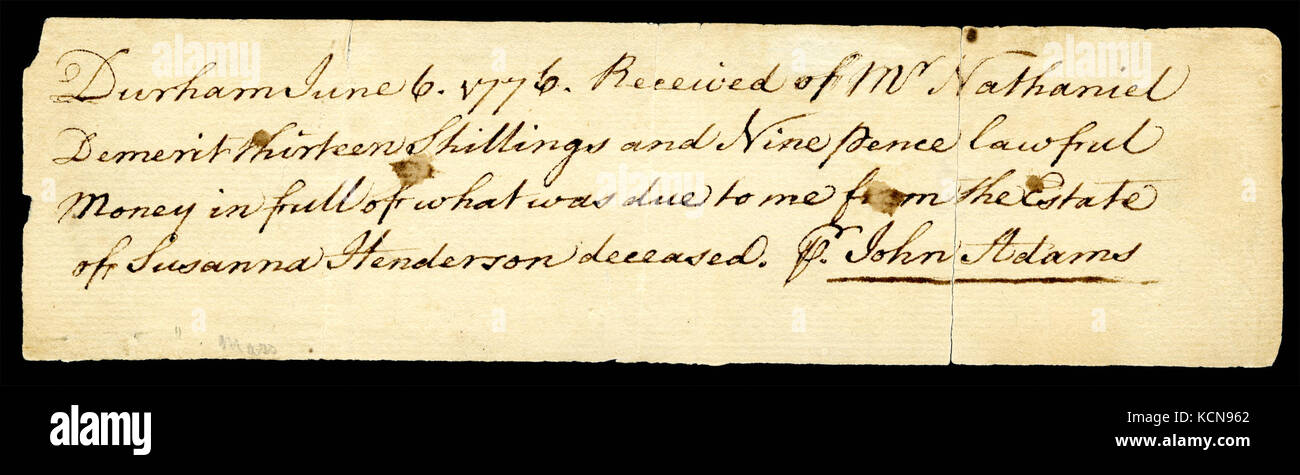 Durham June 6. 1776. Received of Mr Nathaniel
Demerit thirteen Shillings and Nine pence lawful
Money in full of what was due to me from the Estate
of Susanna Henderson deceased. pr. John Adams
Mass
alamy
Image ID: KCN962
www.alamy.com